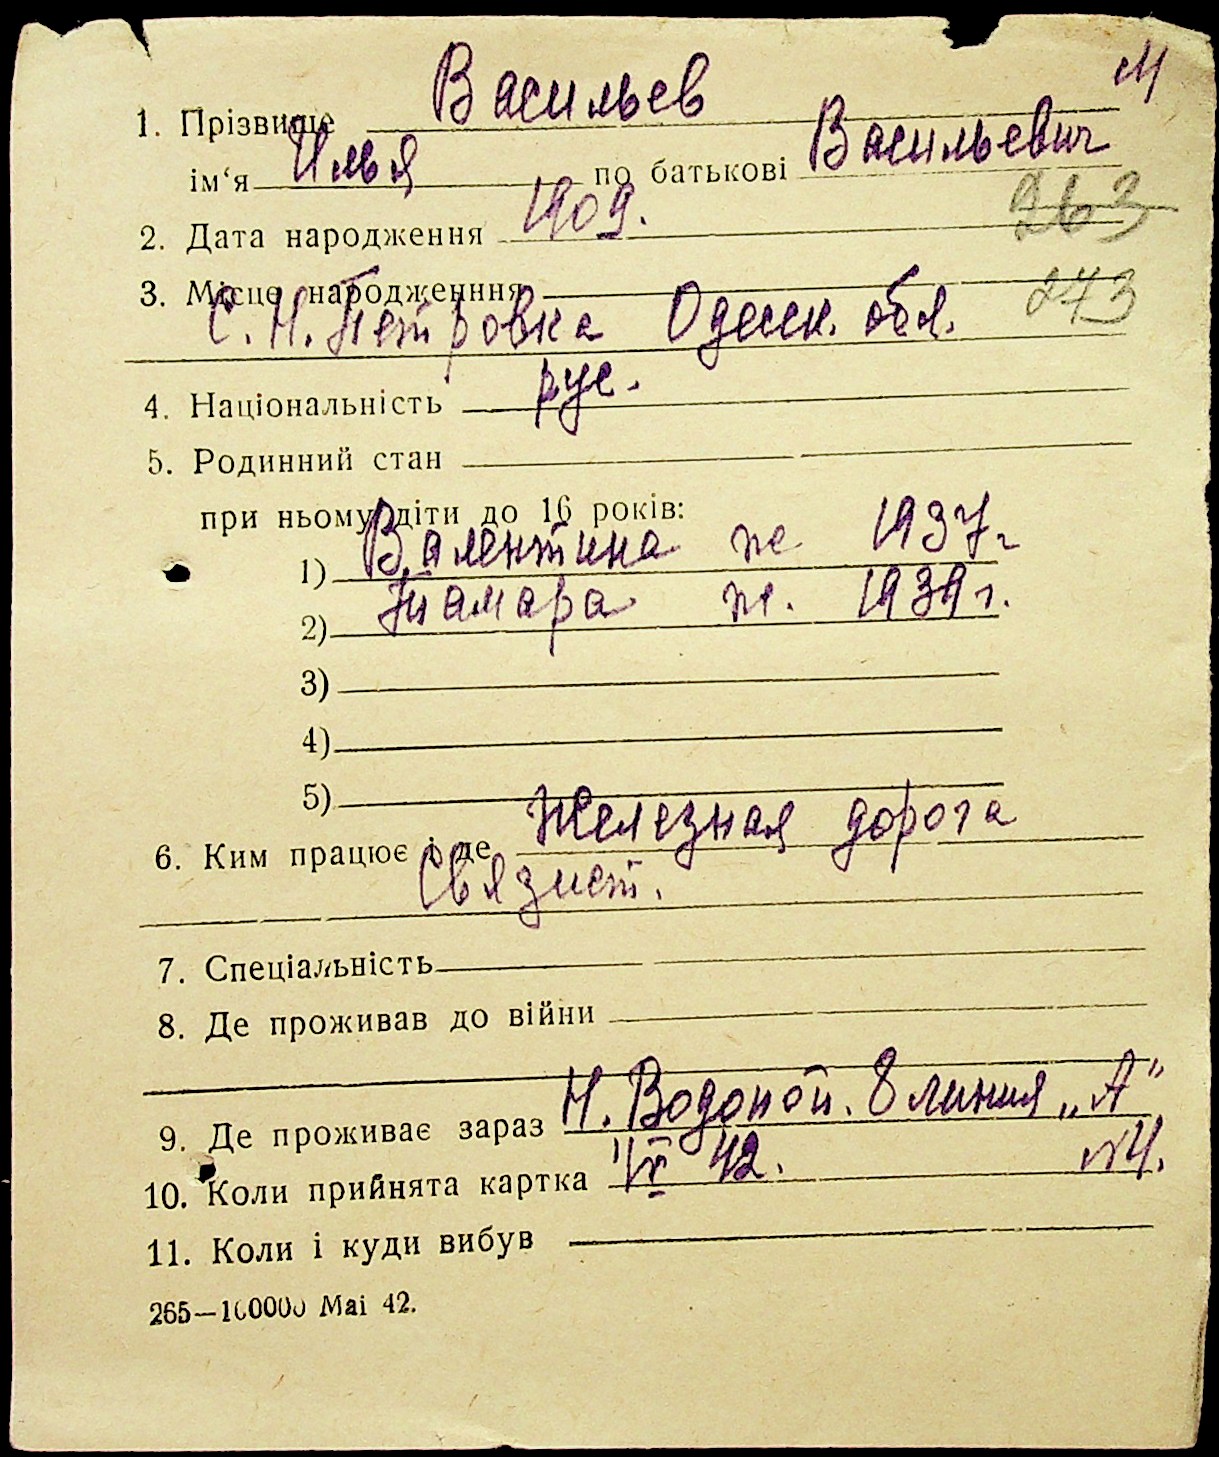 М
1. Прізвище Васильев
ім‘я Илья по батькові Васильевич
2. Дата народження 1909. 263
3. Місце народженння 273
С. Н. Петровка Одесск. обл.
4. Національність рус.
5. Родинний стан
при ньому діти до 16 років:
1) Валентина ж 1937 г
2) Тамара ж. 1939 г.
3)
4)
5)
6. Ким працює і де Железная дорога
Связист.
7. Спеціальність
8. Де проживав до війни
9. Де проживає зараз Н. Водопой. 8 линия „А”
10. Коли прийнята картка VI 42. №4.
11. Коли і куди вибув
265—100000 Маі 42.